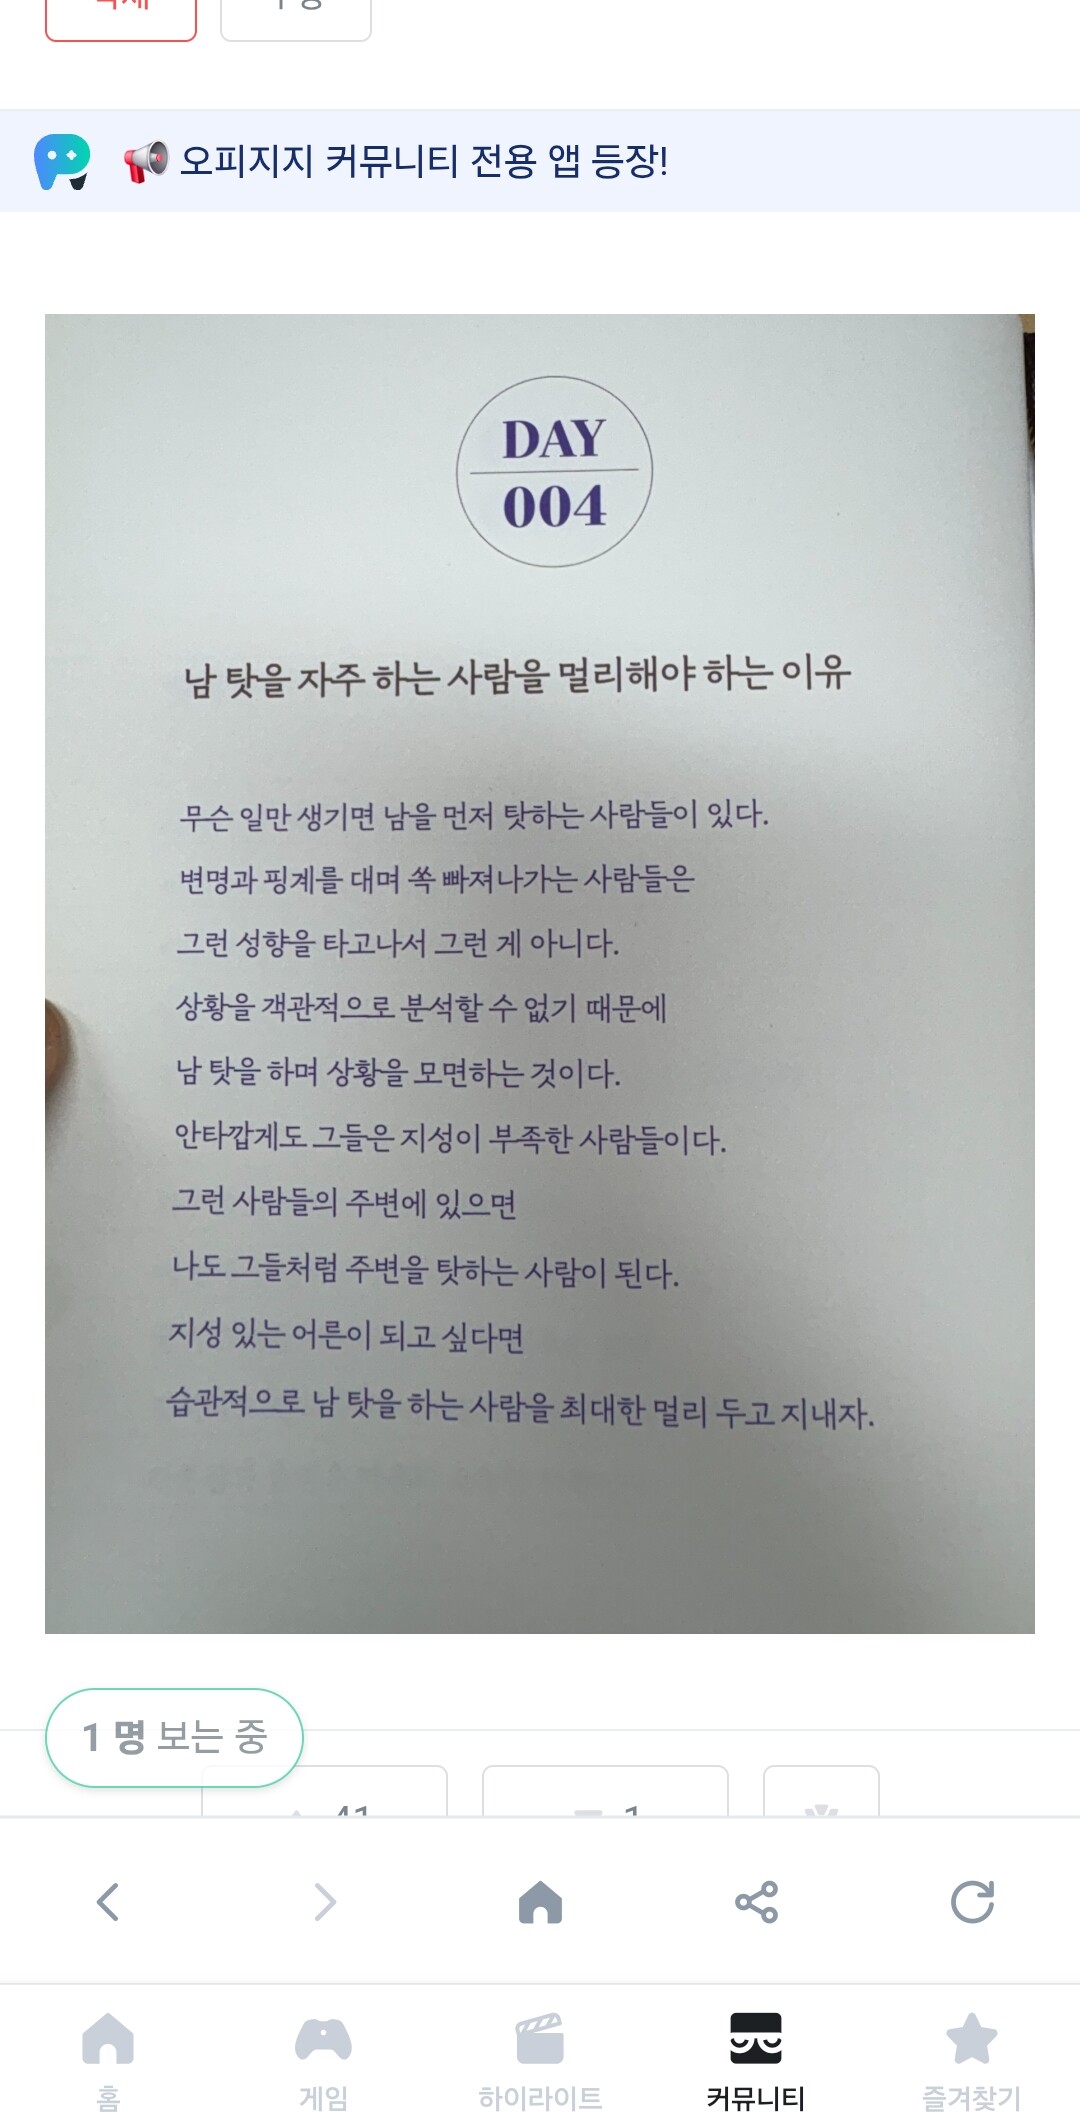 오피지지 커뮤니티 전용 앱 등장!
DAY
004
남 탓을 자주 하는 사람을 멀리해야 하는 이유
무슨 일만 생기면 남을 먼저 탓하는 사람들이 있다.
변명과 핑계를 대며 쏙 빠져나가는 사람들은
그런 성향을 타고나서 그런 게 아니다.
상황을 객관적으로 분석할 수 없기 때문에
남 탓을 하며 상황을 모면하는 것이다.
안타깝게도 그들은 지성이 부족한 사람들이다.
그런 사람들의 주변에 있으면
나도 그들처럼 주변을 탓하는 사람이 된다.
지성 있는 어른이 되고 싶다면
습관적으로 남 탓을 하는 사람을 최대한 멀리 두고 지내자.
1 명 보는 중
41 1
홈 게임 하이라이트 커뮤니티 즐겨찾기